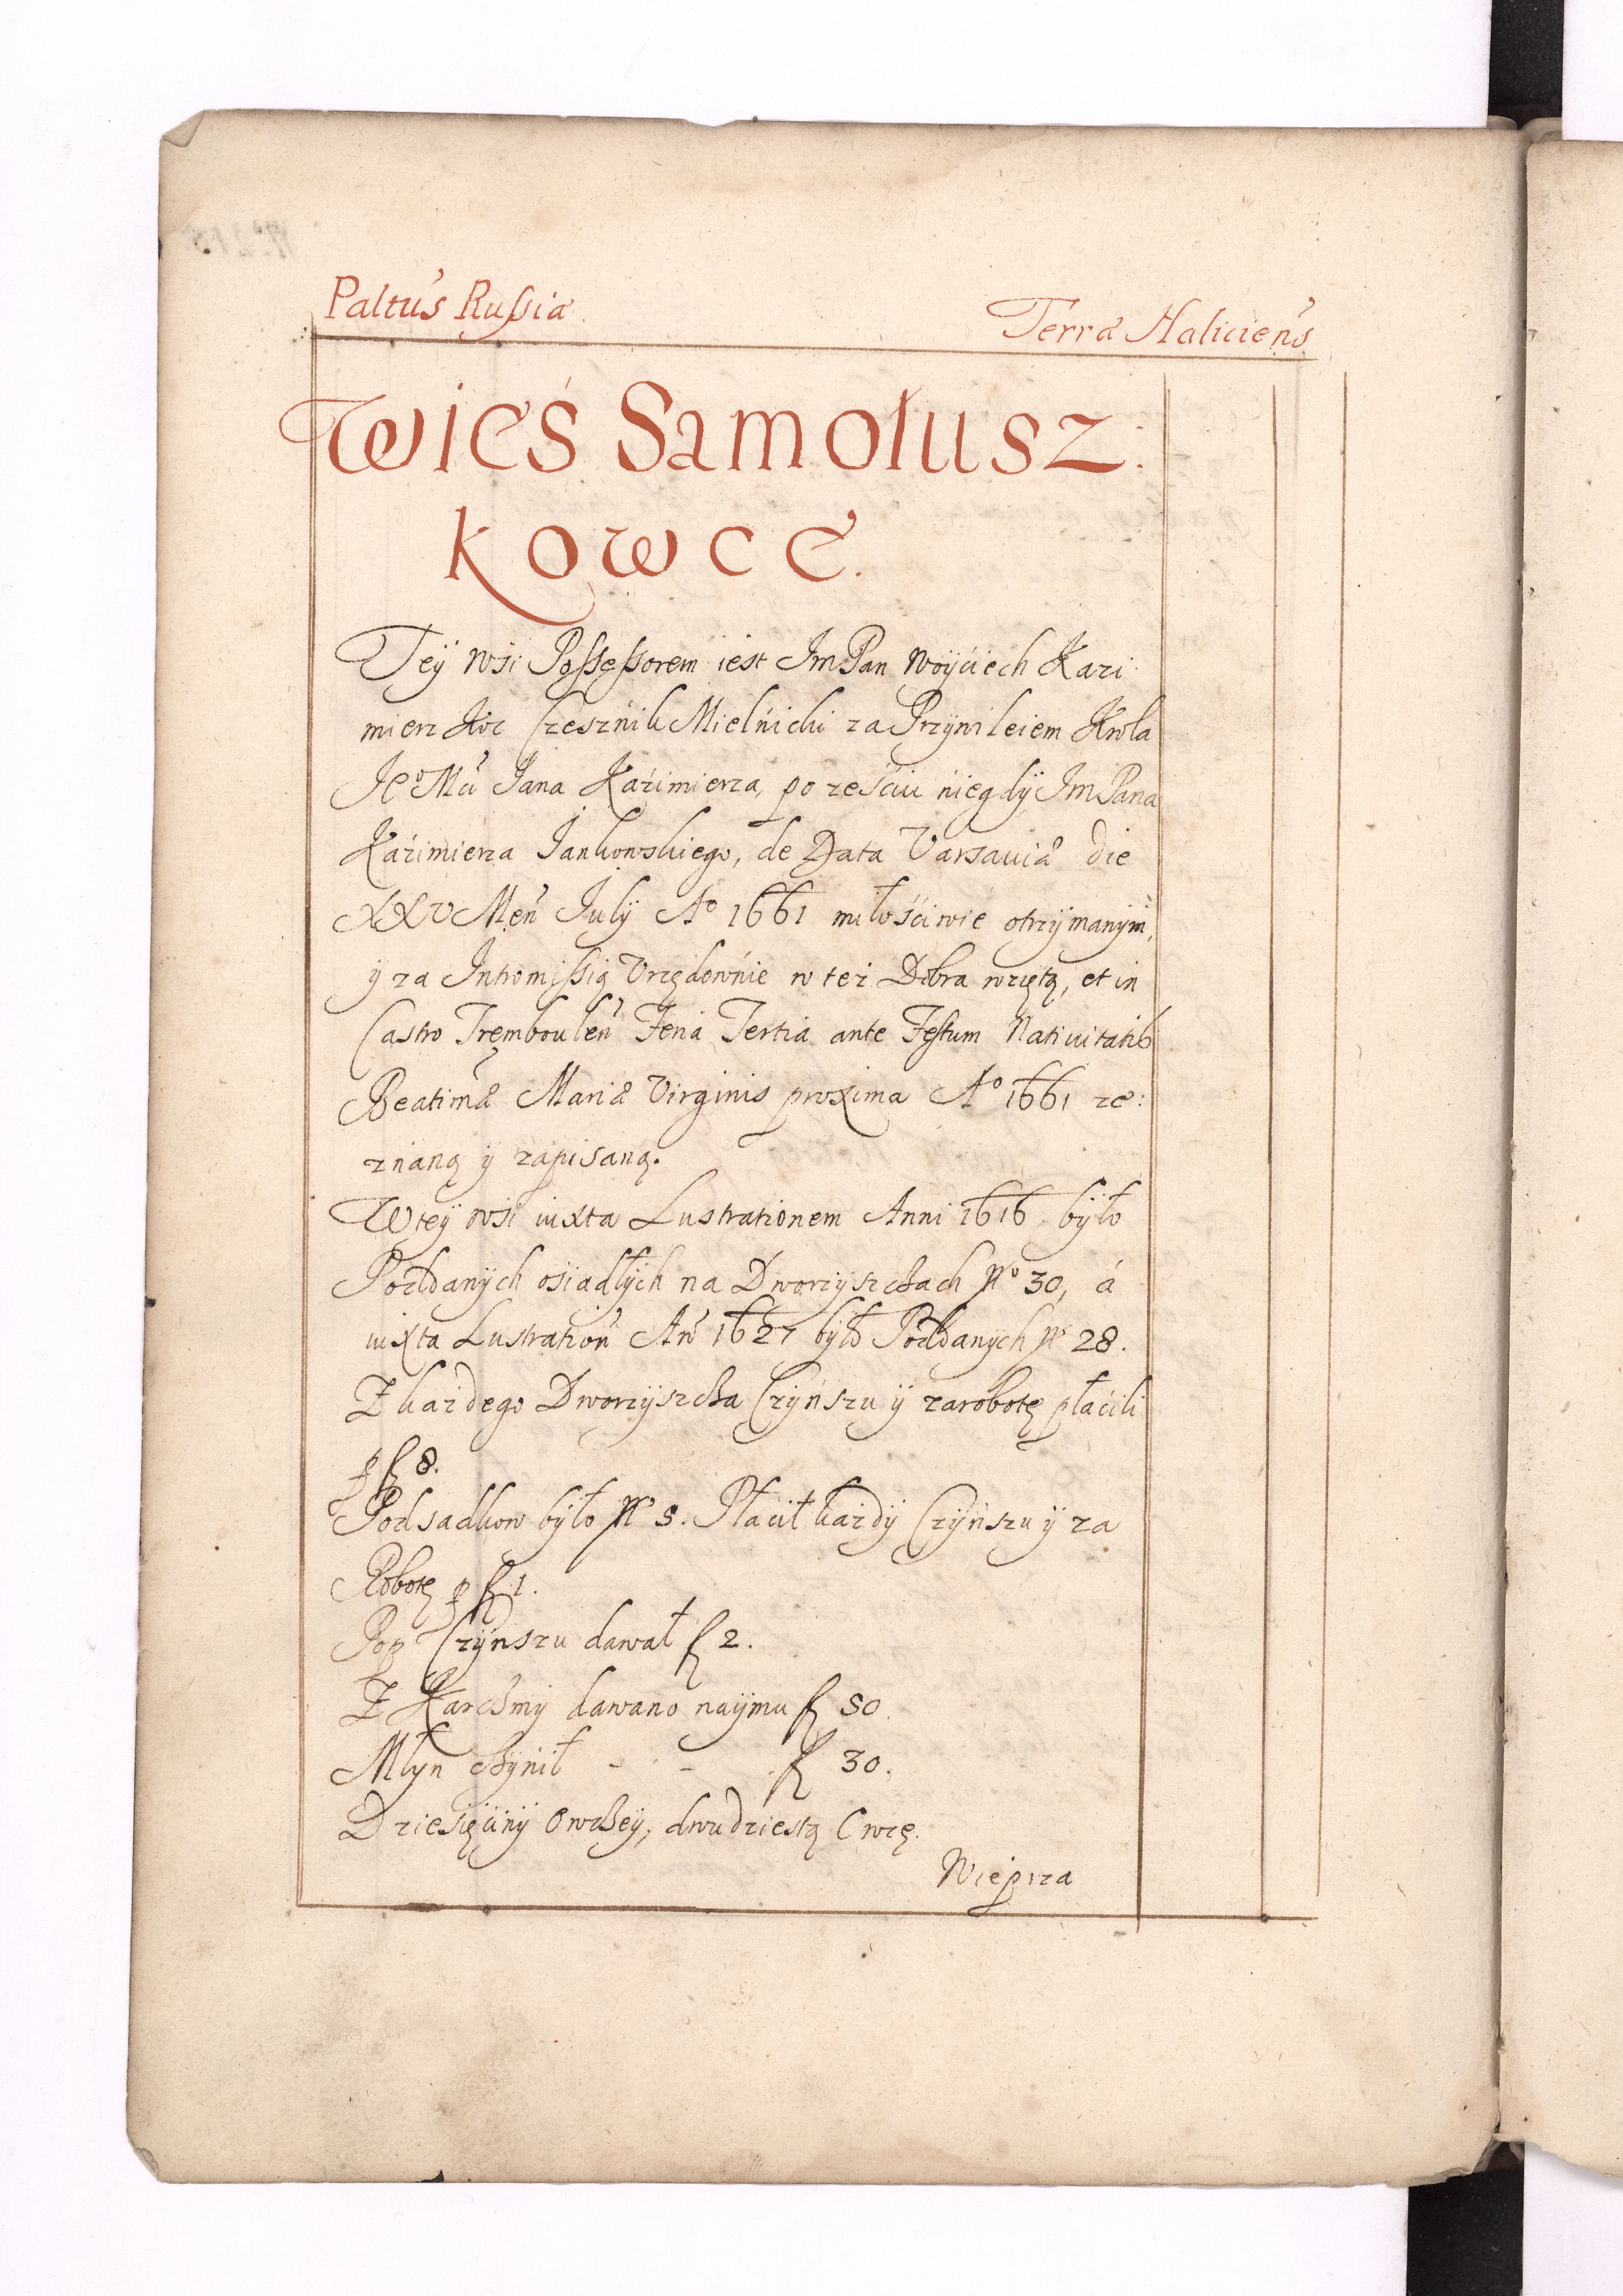 Paltus Russiæ
Terræ Haliciens
Wieś Samołusz:
kowce.
Tey wsi Possessorem iest ImPan Woyciech Kazi:
mierz Koc Czesznik Mielnicki za Przywileiem Krola
JeoMci Jana Kaźimierza, po ześciu niegdy ImPana
Kaźimierza Jankowskiego, de Data Varsaviæ die
XXV Men July Ao 1661 miłościwie otrzymanym,
y za Intromissią Vrzędownie w też Dobra wziętą, et in
Castro Trembovlen Feria Tertia ante Festum Nativitatis
Beatimæ Mariæ Virginis proxima Ao 1661 ze:
znaną y zapisaną.
W tey wsi iuxta Lustrationem Anni 1616 było
Poddanych osiadłych na Dworzyszczach No 30, á
iuxta Lustration An 1627 było Poddanych No 28.
Z każdego Dworzyszcza Czynszu y zarobotę płacili
p f 8.
Podsadkow było No 5. Płacił każdy Czynszu y za
Robotę p f 1.
Pop Czynszu dawał f 2.
Z Karczmy dawano naymu f 50.
Młyn czynił - - f 30.
Dziesięciny Owczey, dwudziestą Owcę.
Wieprza